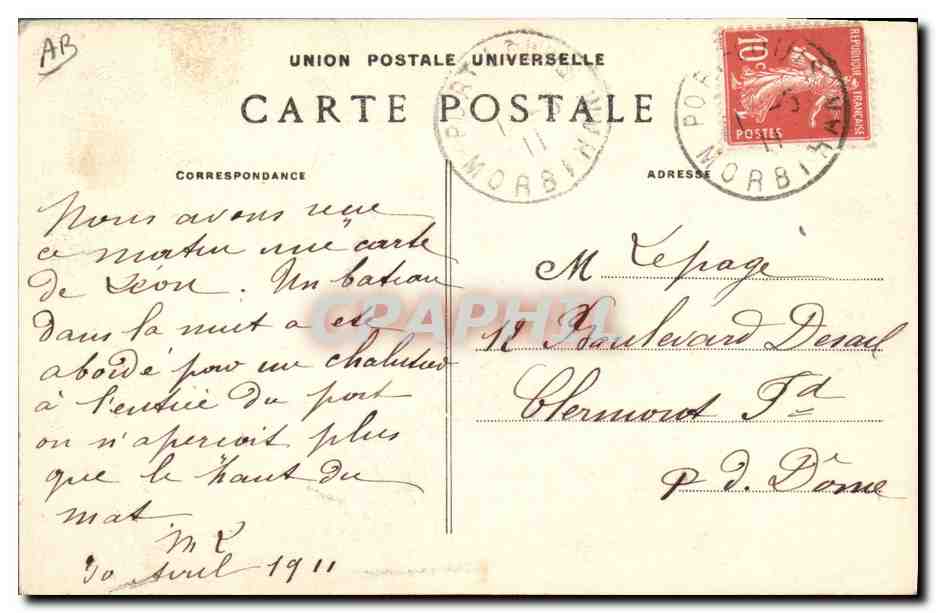 AB
UNION POSTALE UNIVERSELLE
CARTE POSTALE
CORRESPONDANCE
Nous avons reçu
ce matin une carte
de Léon. Un bateau
dans la nuit a été
abordé par un chalutier
à l'entrée du port
on n'aperçoit plus
que le haut du
mat
M L
30 Avril 1911
PORT
11
MORBIHAN
10c
REPUBLIQUE FRANÇAISE
POSTES
MORBIHAN
11
ADRESSE
M Lepage
12 Boulevard Desaix
Clermont Fd
P. d. Dôme
CPAPHIL